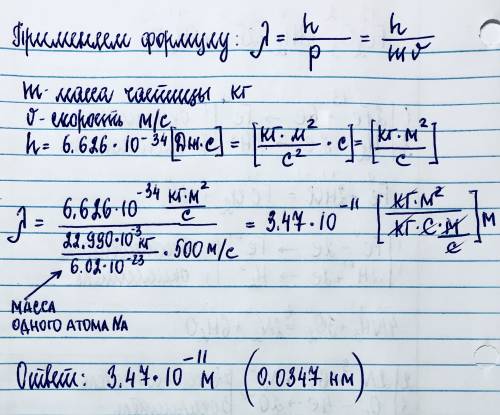 Применяем формулу: λ = h/p = h/mv
m - масса частицы, кг
v - скорость м/с
h = 6.626 · 10⁻³⁴ [Дж·с] = [кг·м²/с² · с] = [кг·м²/с]
λ = (6.626·10⁻³⁴ кг·м²/с) / ((22.990·10⁻³ кг / 6.02·10⁻²³) · 500 м/с) = 3.47·10⁻¹¹ [кг·м² / кг·с·м/с] м
МАССА
ОДНОГО АТОМА Na
Ответ: 3.47·10⁻¹¹ м (0.0347 нм)